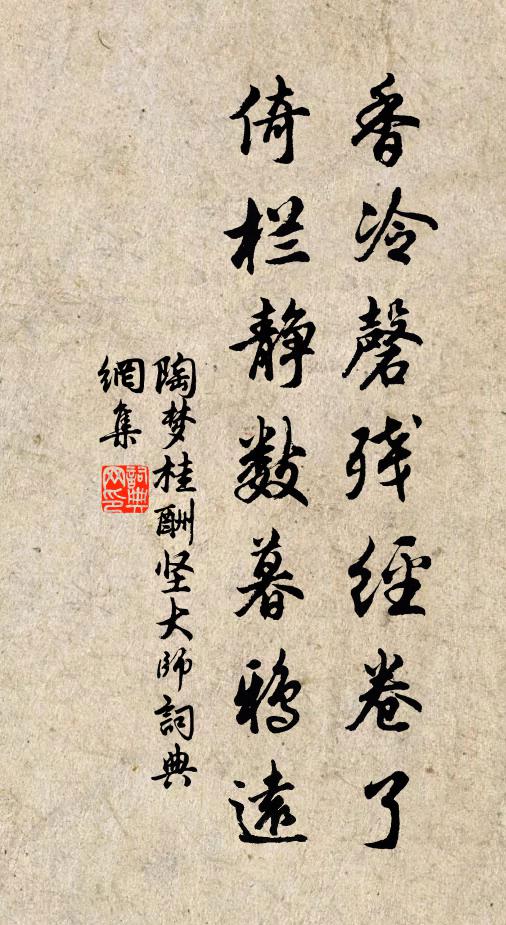 香冷磬残經卷了
倚栏静数暮鸦遠
陶梦桂酬坚大師詞典
網集
詞典網印